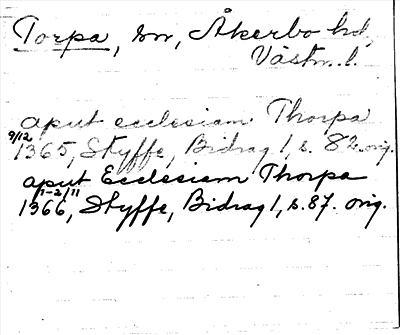 Torpa, sn, Åkerbo hd,
Västm. l.
aput ecclesiam Thorpa
9/12 1365, Styffe, Bidrag 1, s. 82. orig.
aput Ecclesiam Thorpa
1-2/11 1366, Styffe, Bidrag 1, s. 87. orig.